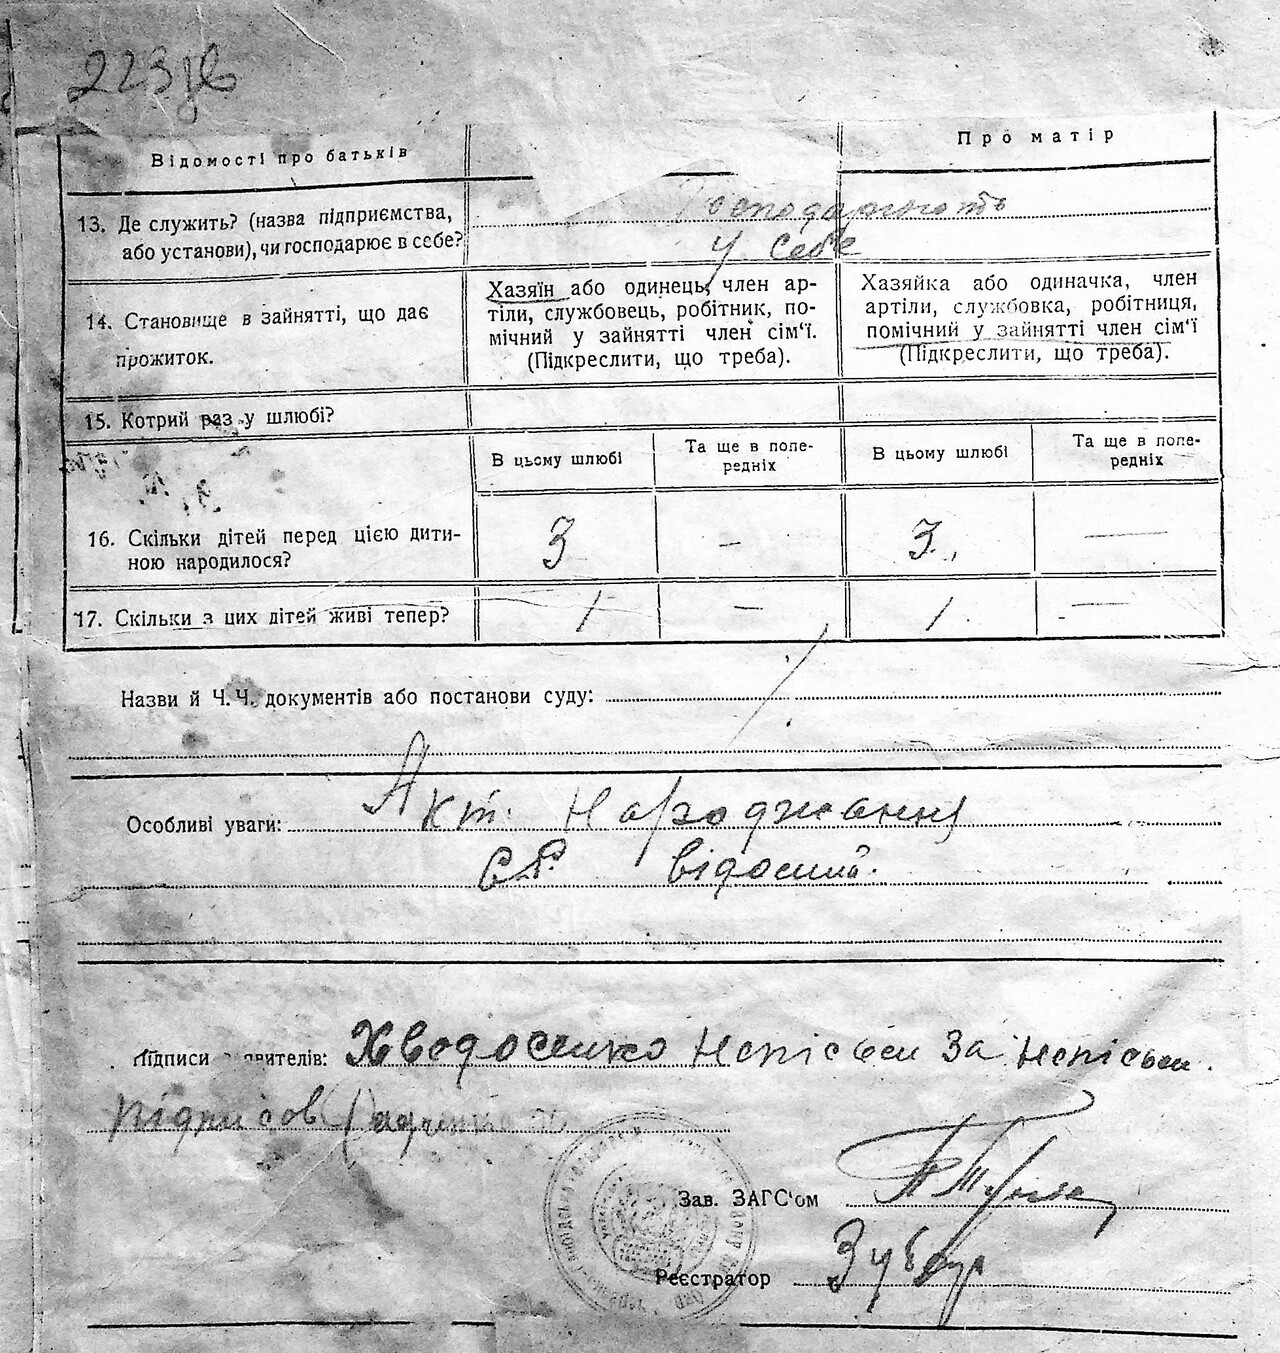 223
Відомості про батьків
Про матір
13. Де служить? (назва підприємства,
або установи), чи господарює в себе?
Господарюють
у себе
14. Становище в зайнятті, що дає
прожиток.
Хазяїн або одинець, член ар-
тілі, службовець, робітник, по-
мічний у зайнятті член сім‘ї.
(Підкреслити, що треба).
Хазяйка або одиначка, член
артіли, службовка, робітниця,
помічний у зайнятті член сім‘ї
(Підкреслити, що треба).
15. Котрий раз у шлюбі?
В цьому шлюбі
Та ще в попе-
редніх
В цьому шлюбі
Та ще в попе-
редніх
16. Скільки дітей перед цією дити-
ною народилося?
3 - 3 —
17. Скільки з цих дітей живі тепер?
1 - 1 —
Назви й Ч. Ч. документів або постанови суду:
Особливі уваги: Акт Народжання
відосний.
Підписи заявителів: Хведосенко Неписьм За Неписьм
підписов
Зав. ЗАГС‘ом
Реєстратор